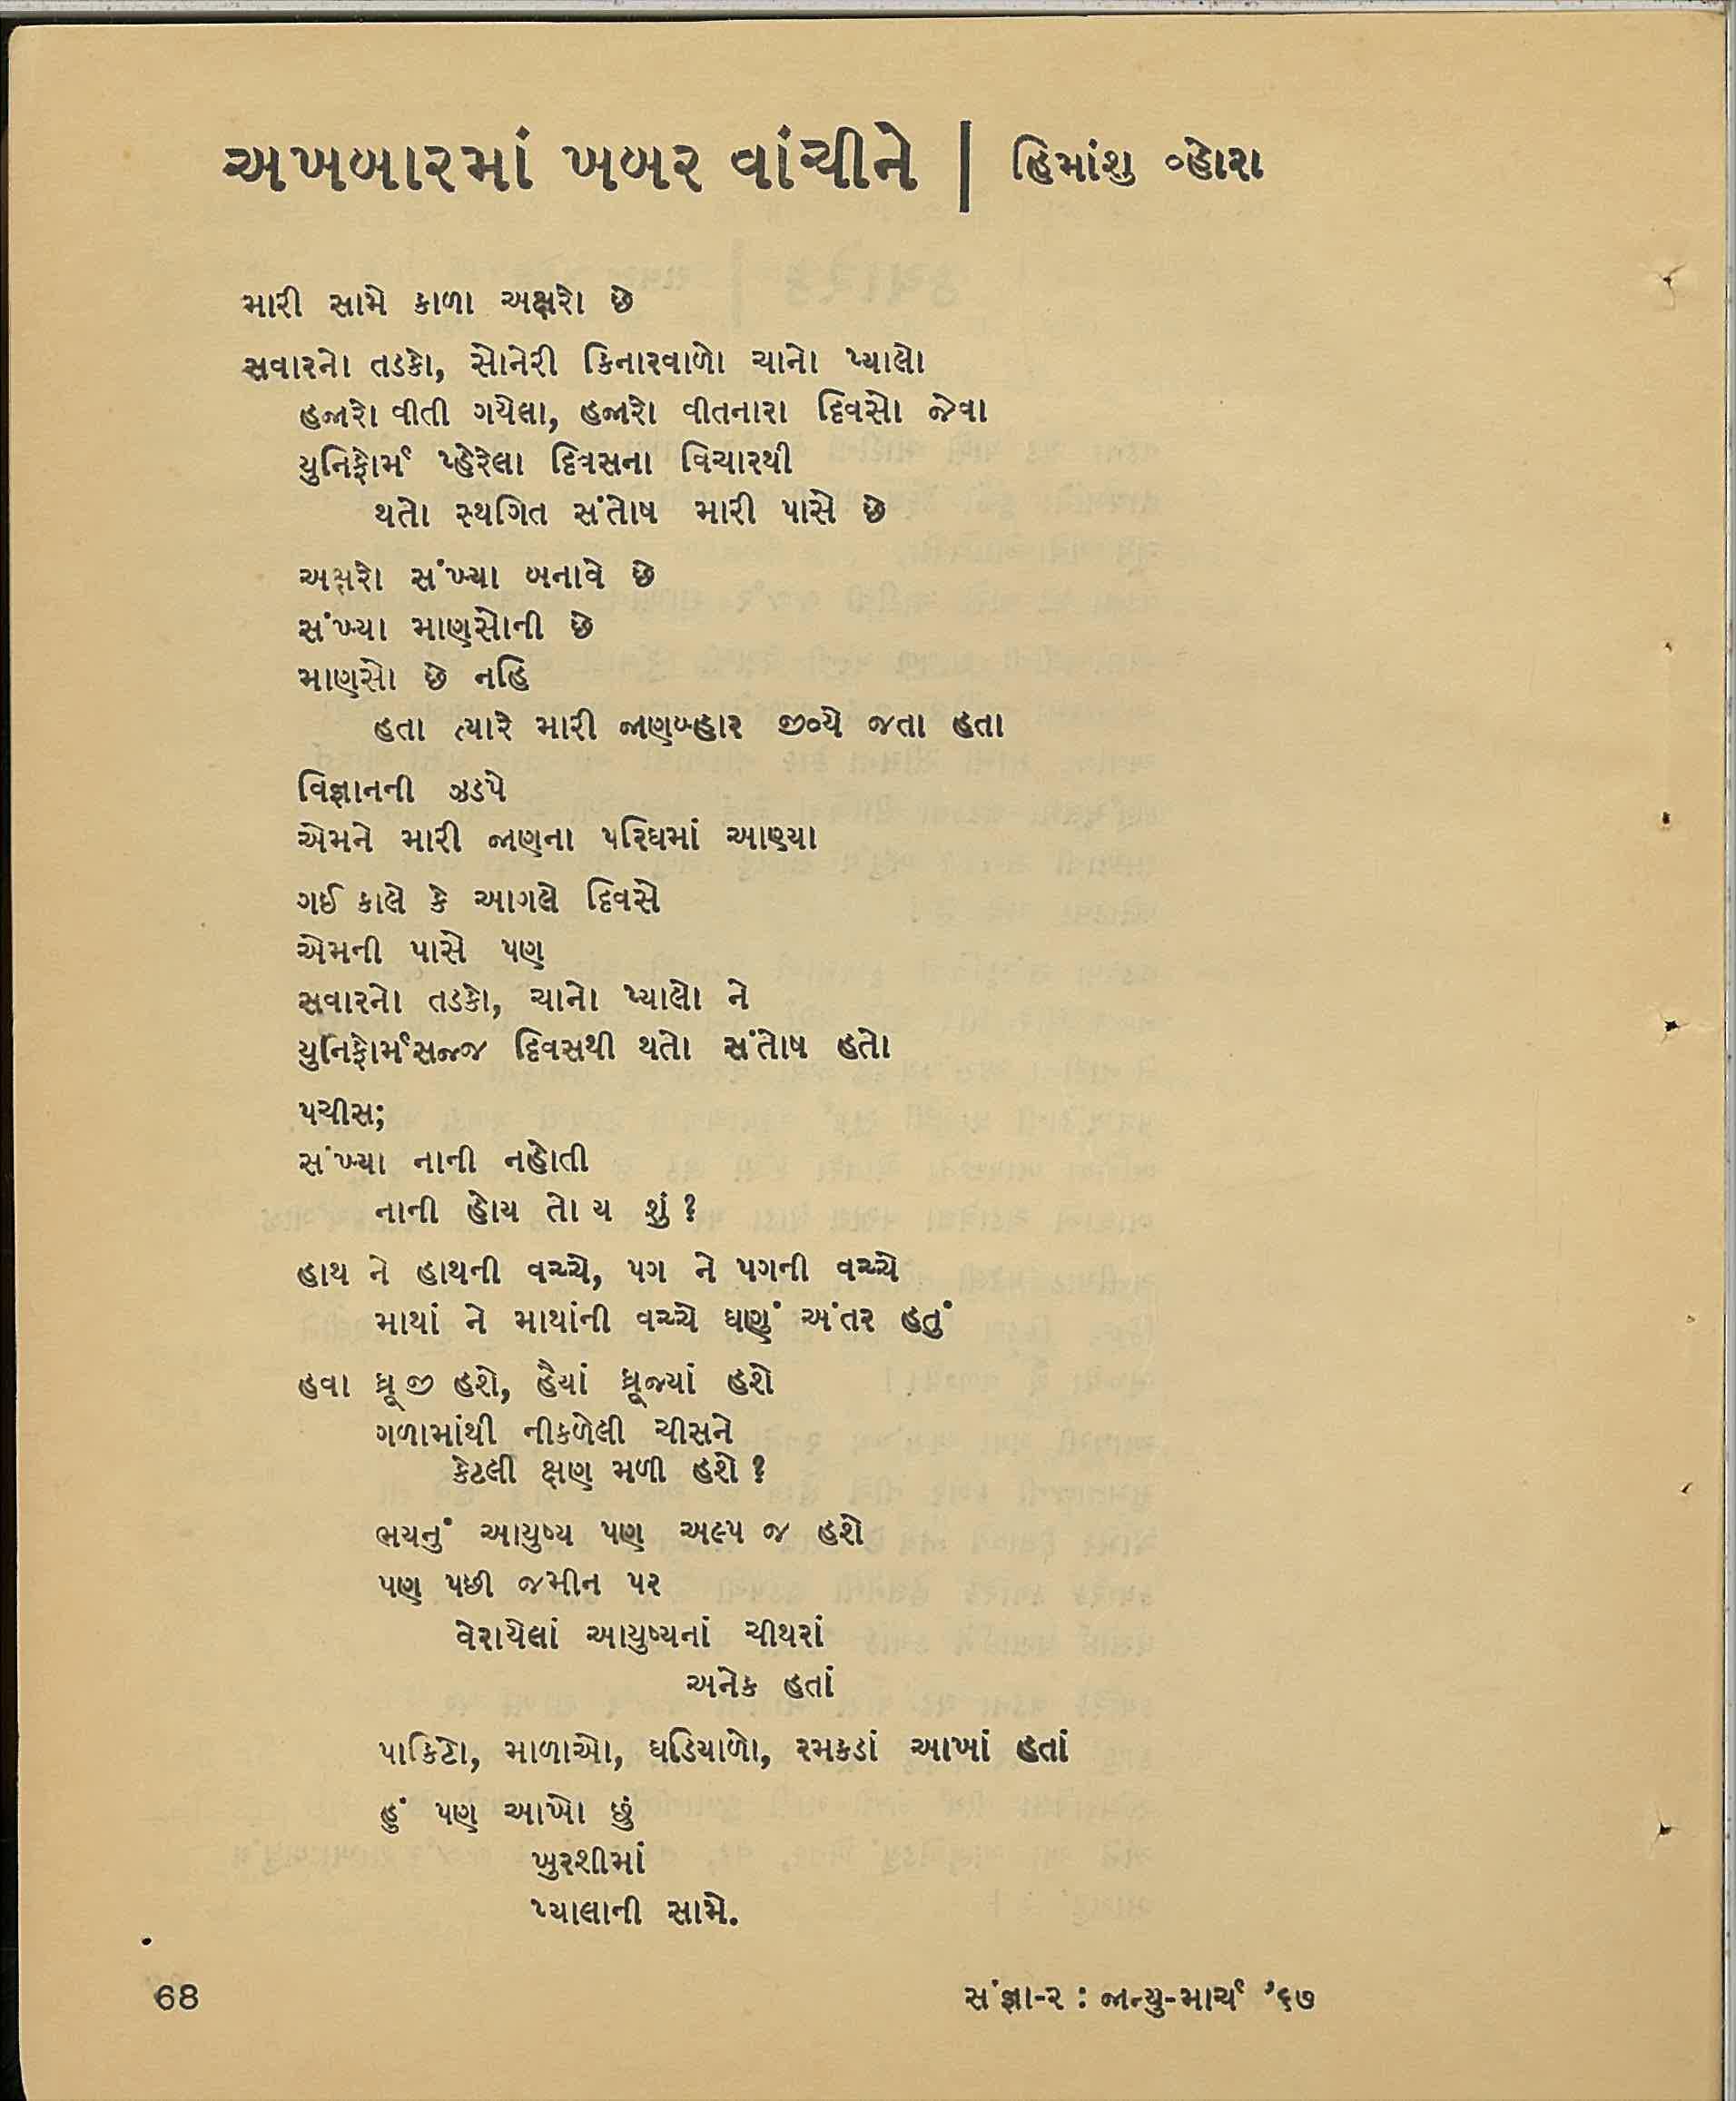 અખબારમાં ખબર વાંચીને | હિમાંશુ વ્હોરા
મારી સામે કાળા અક્ષરો છે
સવારનો તડકો, સોનેરી કિનારવાળો ચાનો પ્યાલો
હજારો વીતી ગયેલા, હજારો વીતનારા દિવસો જેવા
યુનિફોર્મ પ્હેરેલા દિવસના વિચારથી
થતો સ્થગિત સંતોષ મારી પાસે છે
અક્ષરો સંખ્યા બનાવે છે
સંખ્યા માણસોની છે
માણસો છે નહિ
હતા ત્યારે મારી જાણબ્હાર જીવ્યે જતા હતા
વિજ્ઞાનની ઝડપે
એમને મારી જાણના પરિઘમાં આણ્યા
ગઈ કાલે કે આગલે દિવસે
એમની પાસે પણ
સવારનો તડકો, ચાનો પ્યાલો ને
યુનિફોર્મસજ્જ દિવસથી થતો સંતોષ હતો
પચીસ;
સંખ્યા નાની નહોતી
નાની હોય તો ય શું ?
હાથ ને હાથની વચ્ચે, પગ ને પગની વચ્ચે
માથાં ને માથાંની વચ્ચે ઘણું અંતર હતું
હવા ધ્રૂજી હશે, હૈયાં ધ્રૂજ્યાં હશે
ગળામાંથી નીકળેલી ચીસને
કેટલી ક્ષણ મળી હશે ?
ભયનું આયુષ્ય પણ અલ્પ જ હશે
પણ પછી જમીન પર
વેરાયેલાં આયુષ્યનાં ચીથરાં
અનેક હતાં
પાકિટો, માળાઓ, ઘડિયાળો, રમકડાં આખાં હતાં
હું પણ આખો છું
ખુરશીમાં
પ્યાલાની સામે.
68
સંજ્ઞા-૨ : જાન્યુ-માર્ચ '૬૭